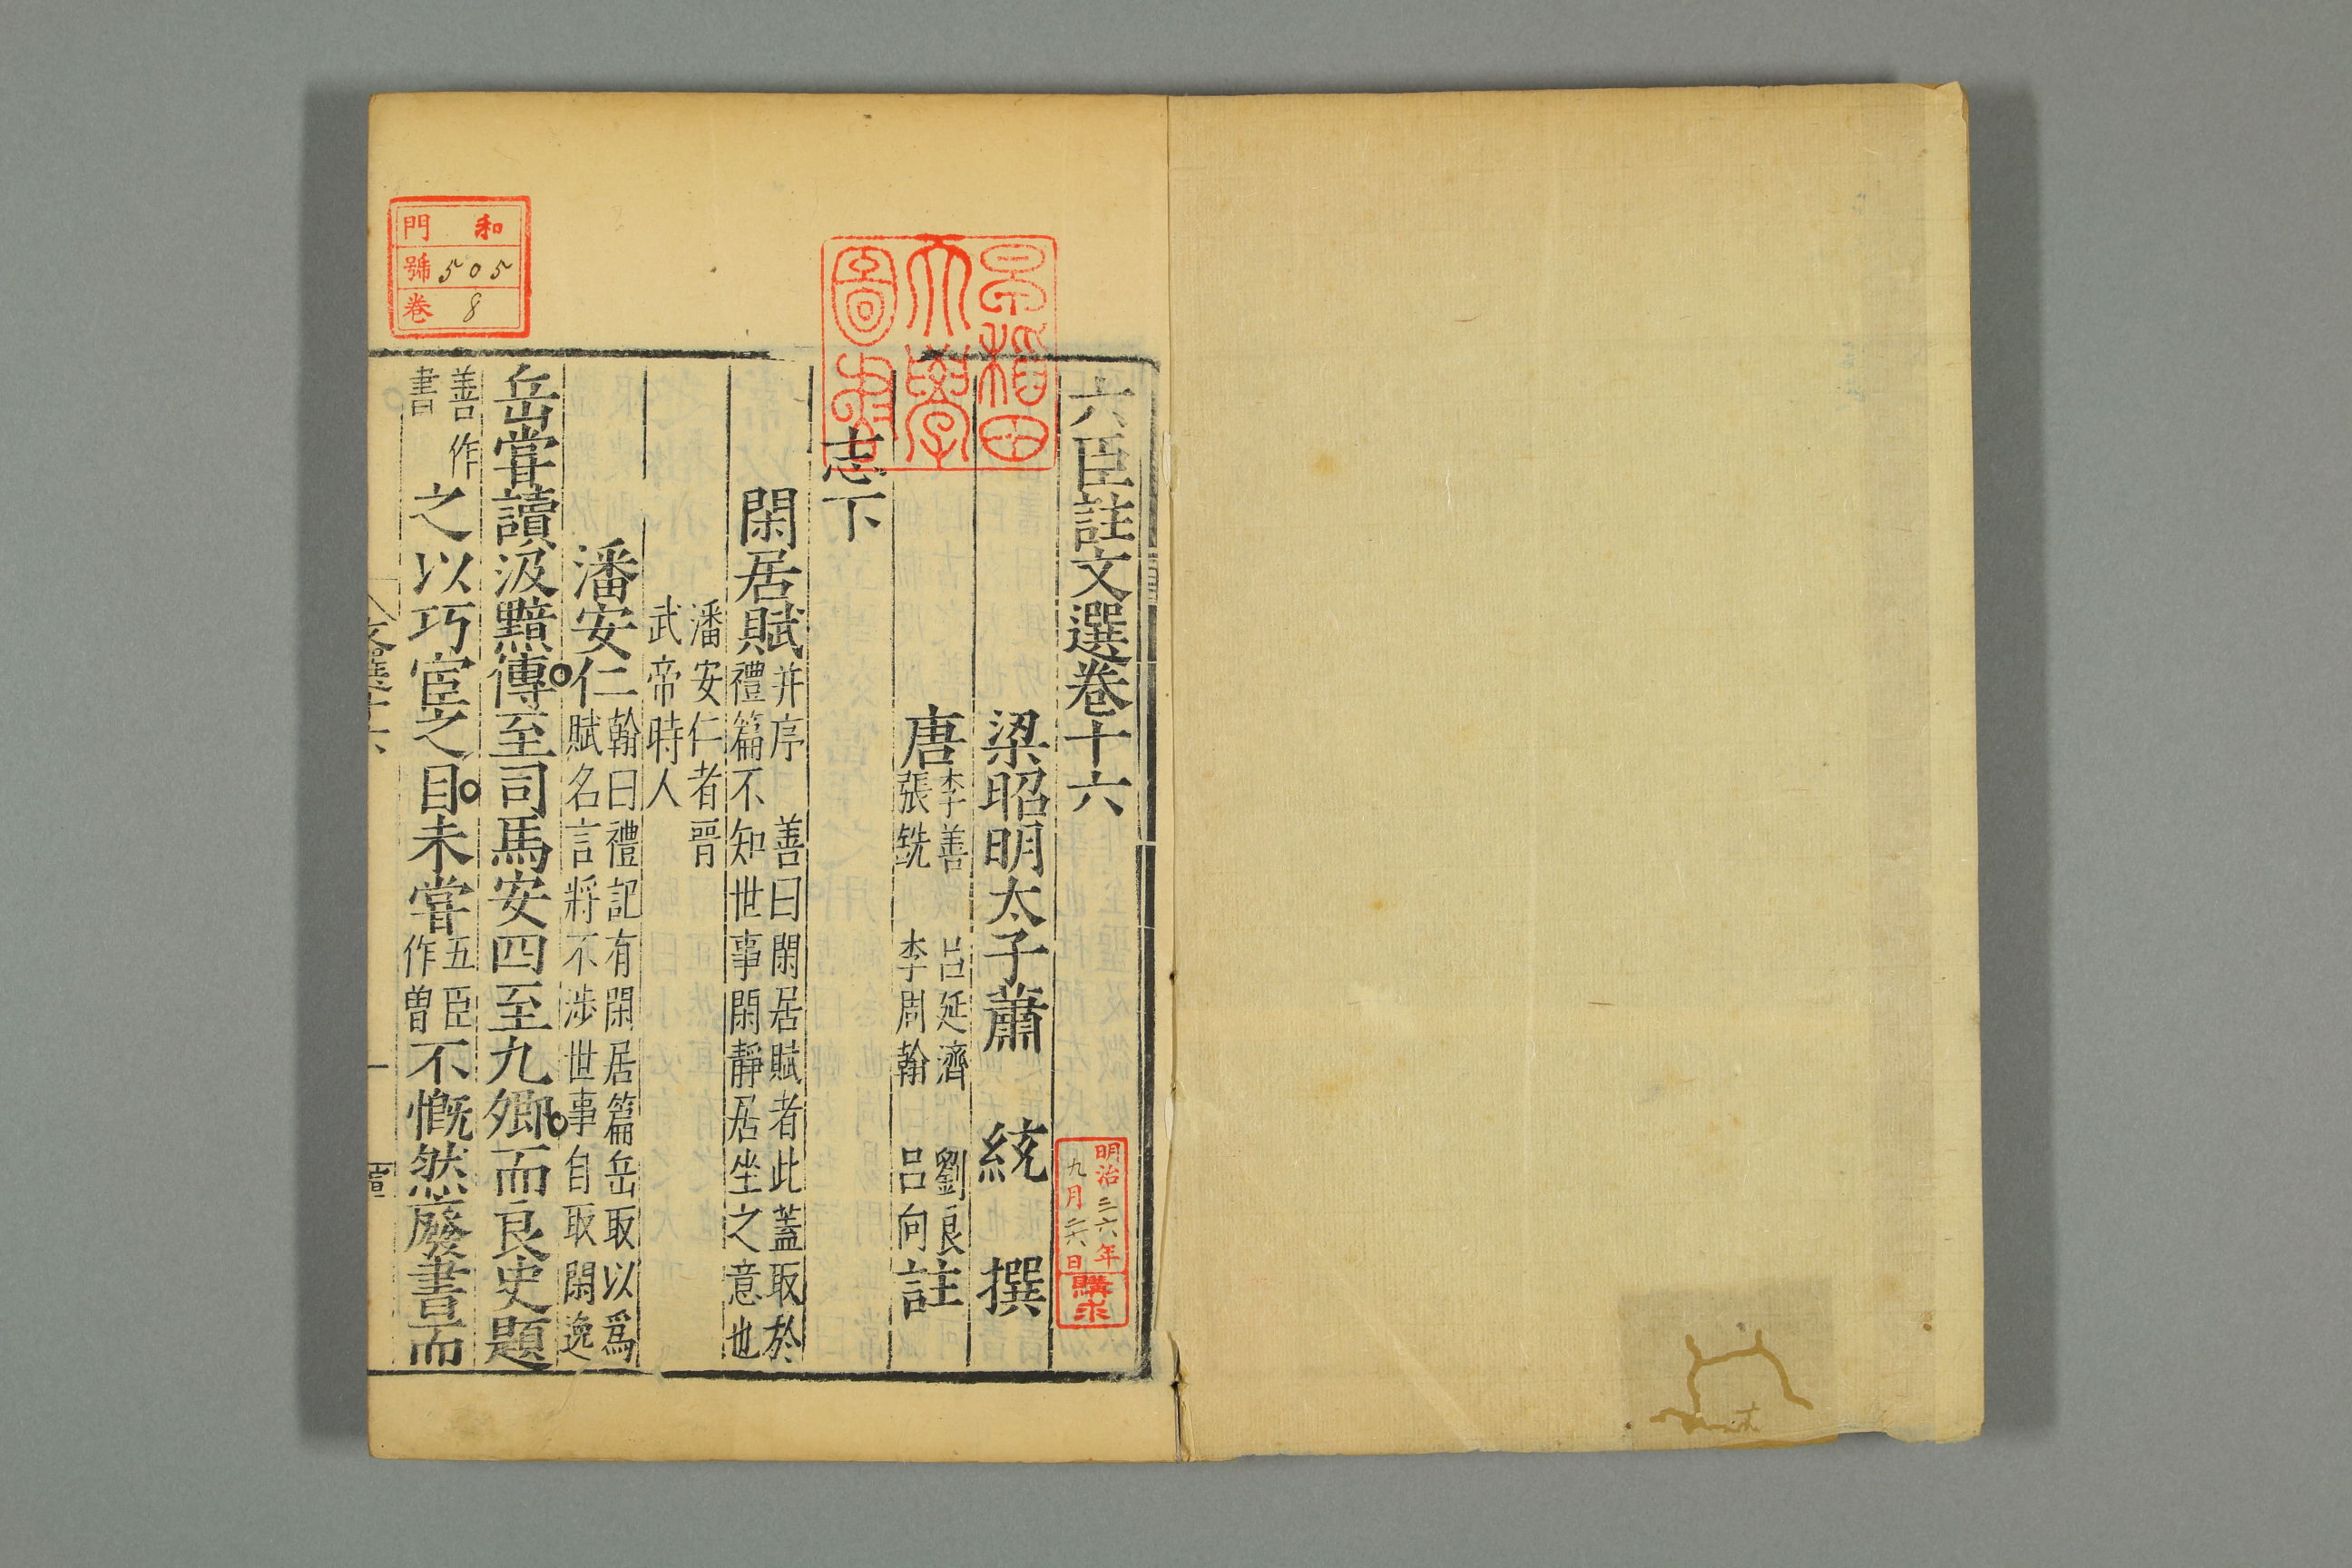 六臣註文選卷十六
梁昭明太子蕭統撰
唐李善呂延濟劉良
張銑李周翰呂向註
志下
閑居賦并序善曰閑居賦者此蓋取於
禮篇不知世事閑靜居坐之意也
潘安仁者晉
武帝時人
潘安仁翰曰禮記有閑居篇岳取以爲
賦名言將不涉世事自取閑逸
岳甞讀汲黯傳至司馬安四至九卿而良史題
善作
書
之以巧宦之目未甞五臣
作曽
不慨然廢書而
文選十六
一
早稻田
大學
圖書
和門
505號
8卷
明治三六年
九月二六日
購求